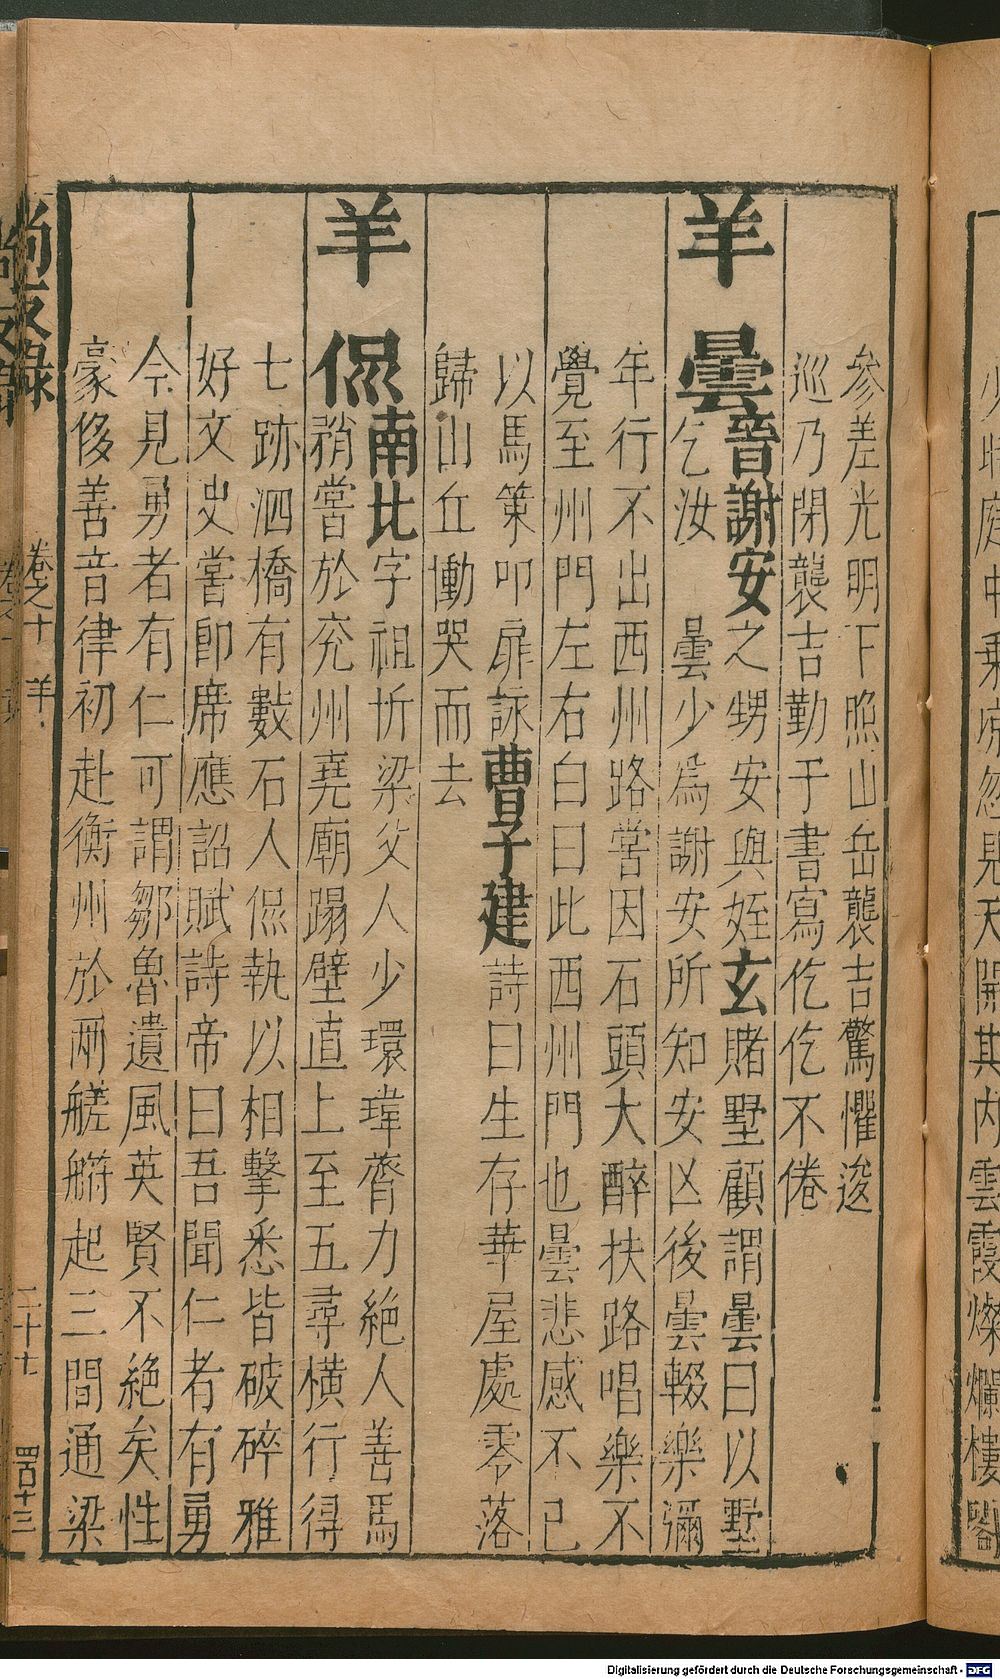 參差光明下照山岳襲吉驚懼逡
巡乃閉襲吉勤于書寫仡仡不倦
羊曇音謝安之甥安與姪玄賭墅顧謂曇曰以墅
乞汝　曇少爲謝安所知安凶後曇輟樂彌
年行不出西州路嘗因石頭大醉扶路唱樂不
覺至州門左右白曰此西州門也曇悲感不已
以馬策叩扉詠曹子建詩曰生存華屋處零落
歸山丘慟哭而去
羊侃南北字祖忻梁父人少環瑋膂力絶人善馬
矟嘗於兖州堯廟蹋壁直上至五尋橫行得
七跡泗橋有數石人侃執以相擊悉皆破碎雅
好文史嘗卽席應詔賦詩帝曰吾聞仁者有勇
今見勇者有仁可謂鄒魯遺風英賢不絶矣性
豪侈善音律初赴衡州於兩艖䑺起三間通梁
尚友錄
卷之十　羊
二十七
四百十三
少時庭中乘涼忽見天開其內雲霞燦爛樓閣
Digitalisierung gefördert durch die Deutsche Forschungsgemeinschaft - DFG